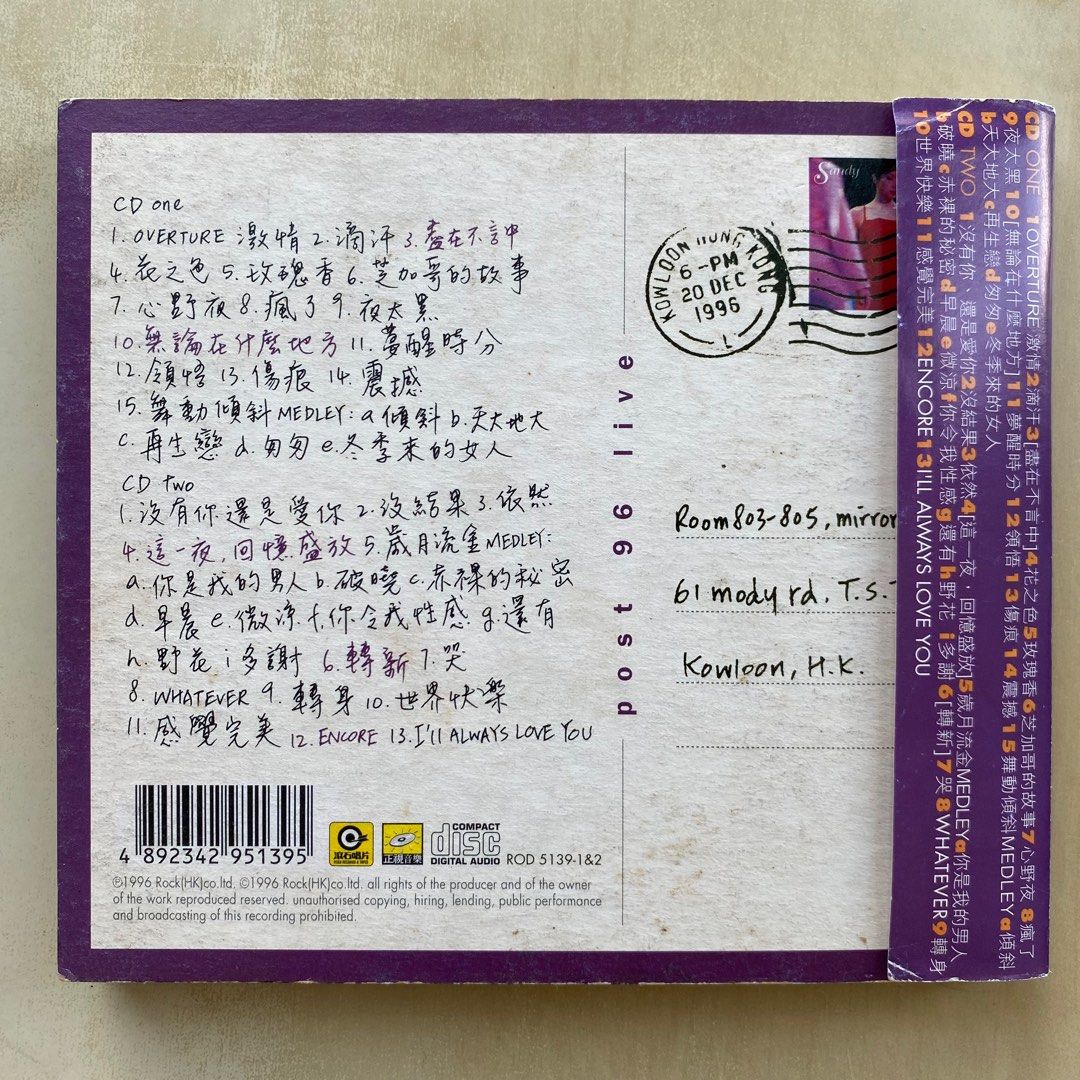 CD one
1. OVERTURE 激情 2. 滴汗 3. 盡在不言中
4. 花之色 5. 玫瑰香 6. 芝加哥的故事
7. 心野夜 8. 瘋了 9. 夜太黑
10. 無論在什麼地方 11. 夢醒時分
12. 領悟 13. 傷痕 14. 震撼
15. 舞動傾斜 MEDLEY: a 傾斜 b. 天大地大
c. 再生戀 d. 匆匆 e. 冬季來的女人
CD two
1. 沒有你還是愛你 2. 沒結果 3. 依然
4. 這一夜, 回憶盛放 5. 歲月流金 MEDLEY:
a. 你是我的男人 b. 破曉 c. 赤裸的秘密
d. 早晨 e. 微涼 f. 你令我性感 g. 還有
h. 野花 i 多謝 6. 轉新 7. 哭
8. WHATEVER 9. 轉身 10. 世界快樂
11. 感覺完美 12. ENCORE 13. I'll ALWAYS LOVE YOU
4 892342 951395
滾石唱片
正視音樂
COMPACT
disc
DIGITAL AUDIO
ROD 5139-1&2
℗1996 Rock(HK)co.ltd. ©1996 Rock(HK)co.ltd. all rights of the producer and of the owner
of the work reproduced reserved. unauthorised copying, hiring, lending, public performance
and broadcasting of this recording prohibited.
post 96 live
Sandy
KOWLOON HONG KONG
6-PM
20 DEC
1996
1
Room 803-805, mirror
61 mody rd. T.S.T
Kowloon, H.K.
CD ONE 1OVERTURE 激情2滴汗3[盡在不言中]4花之色5玫瑰香6芝加哥的故事7心野夜 8瘋了
9夜太黑10[無論在什麼地方]11夢醒時分12領悟13傷痕14震撼15舞動傾斜MEDLEYa傾斜
b天大地大c再生戀d匆匆e冬季來的女人
CD TWO 1沒有你、還是愛你2沒結果3依然4[這一夜·回憶盛放]5歲月流金MEDLEYa你是我的男人
b破曉c赤裸的秘密d早晨e微涼f你令我性感g還有h野花 i多謝6[轉新]7哭8WHATEVER9轉身
10世界快樂11感覺完美12ENCORE13I'LL ALWAYS LOVE YOU